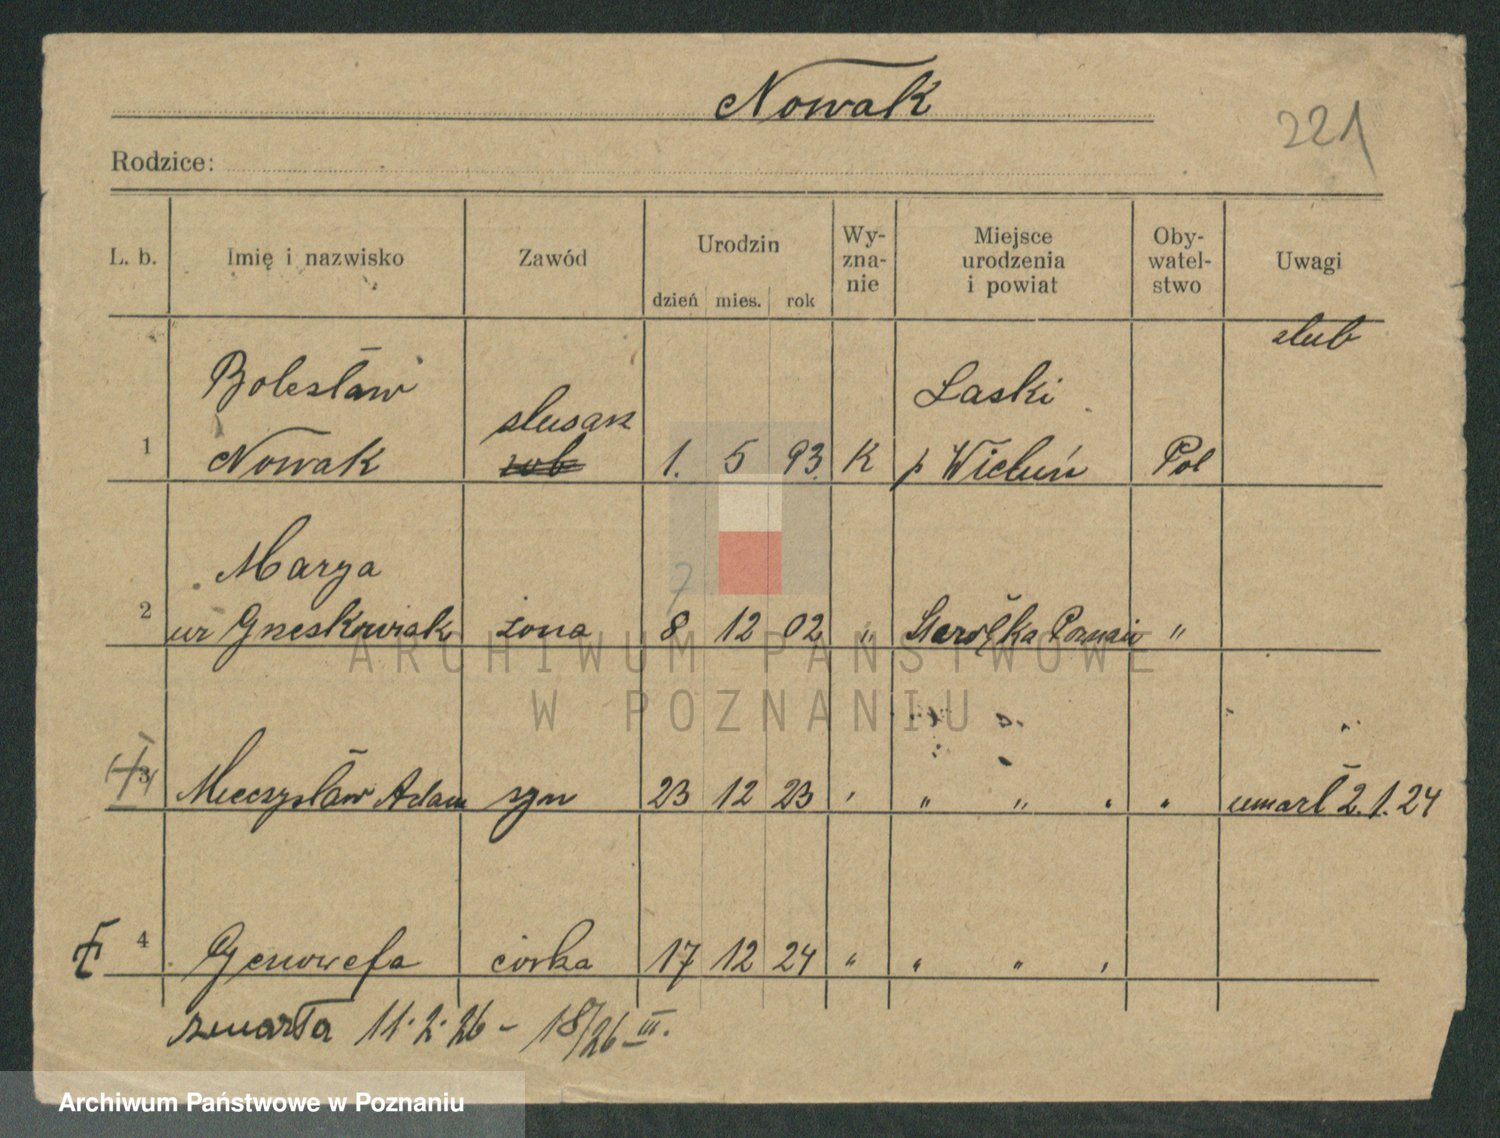 Nowak
221
Rodzice:
L. b. Imię i nazwisko Zawód Urodzin dzień mies. rok Wy-zna-nie Miejsce urodzenia i powiat Oby-watel-stwo Uwagi
slub
Bolesław Laski
slusarz
1 Nowak rob 1. 5 93. K p Wieluń Pol
Marya
7
2 ur Gneskowiak żona 8 12 02 " Starołęka Poznań "
3 Mieczysław Adam syn 23 12 23 " " " " " umarł 2.1.24
4 Genowefa córka 17 12 24 " " " "
zmarła 11.2.26 - 18/26 III.
ARCHIWUM PAŃSTWOWE
W POZNANIU
Archiwum Państwowe w Poznaniu